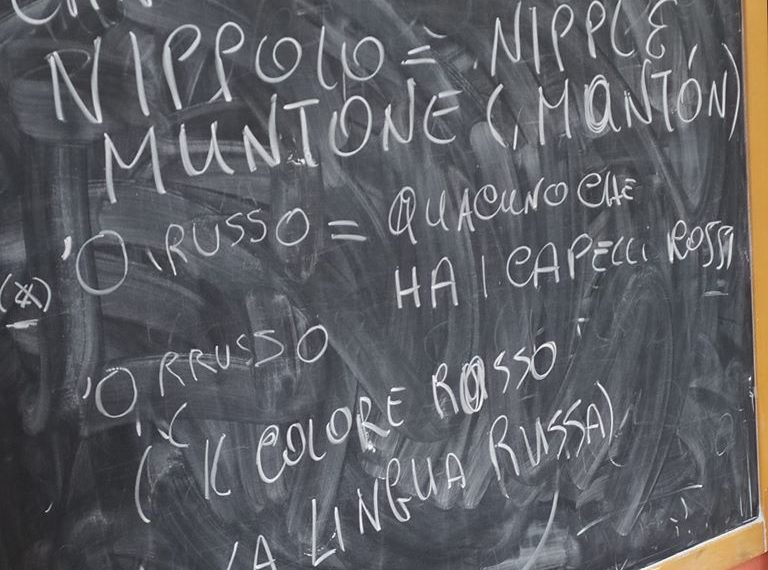 NIPPOLO = NIPPLE
MUNTONE (, MONTÓN)
'O RUSSO = QUACUNO CHE
HA I CAPELLI ROSSI
(*)
'O RRUSSO
(IL COLORE ROSSO
LA LINGUA RUSSA)